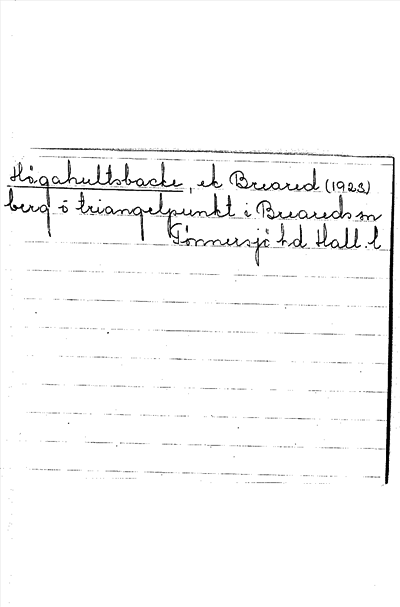 Högahultsbacke, ek Breared (1923)
berg o triangelpunkt i Breareds sn
Tönnersjö hd Hall. l